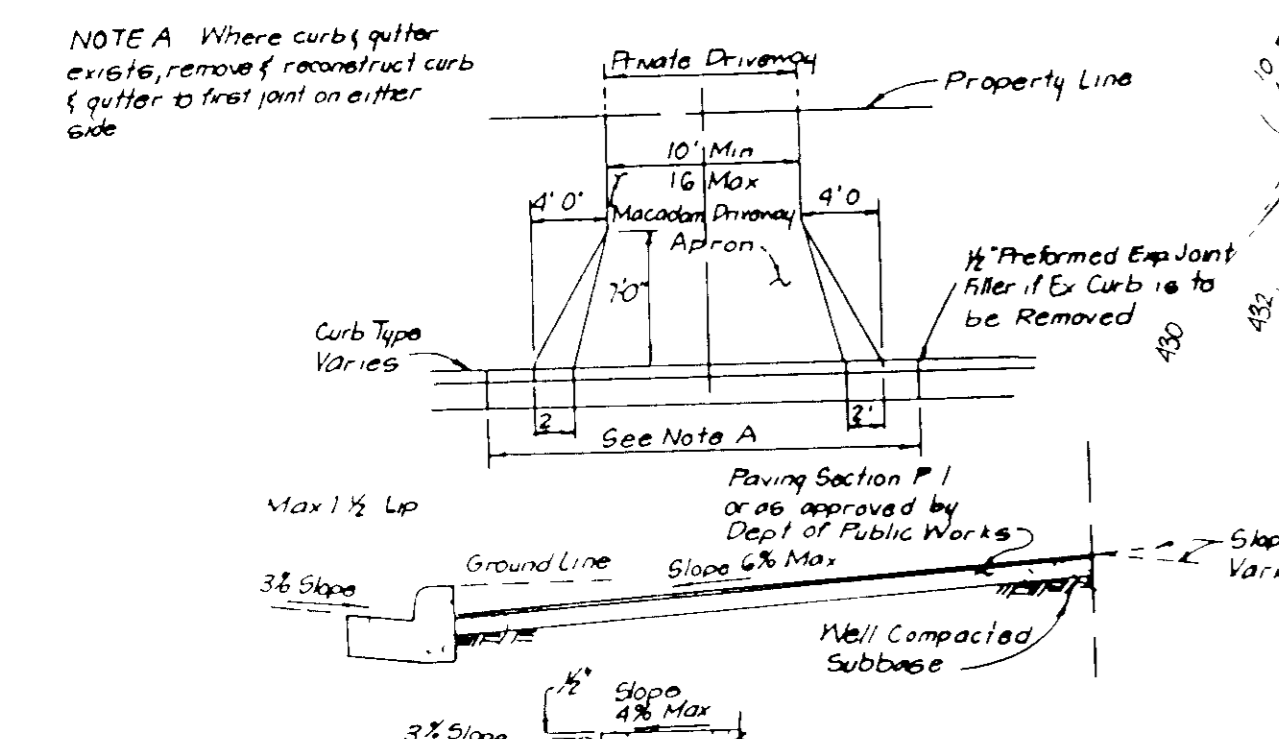 NOTE A Where curb & gutter
exists, remove & reconstruct curb
& gutter to first joint on either
side
Private Driveway
Property Line
10' Min
16 Max
4'0"
4'0
Macadam Driveway
Apron
7'0"
1/2" Preformed Exp Joint
Filler if Ex Curb is to
be Removed
Curb Type
Varies
10
432
430
2
2'
See Note A
Max 1 1/2 Lip
Paving Section P 1
or as approved by
Dept of Public Works
Ground Line
Slope 6% Max
3% Slope
Well Compacted
Subbase
1/2"
Slope
4% Max
3% Slope